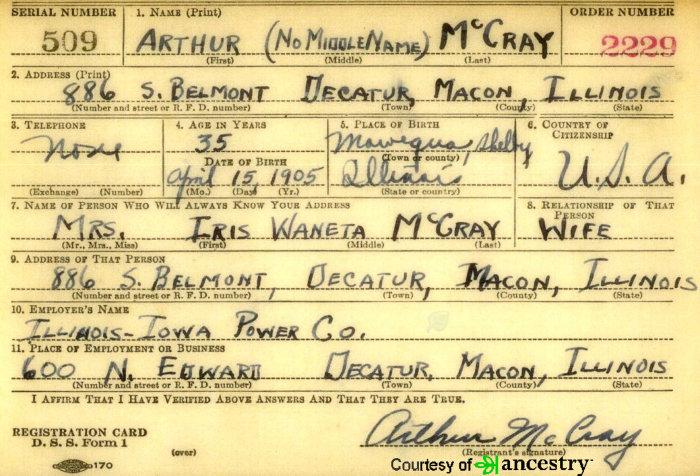 SERIAL NUMBER 1. NAME (Print) ORDER NUMBER
509 ARTHUR (NO MIDDLE NAME) McCRAY 2229
(First) (Middle) (Last)
2. ADDRESS (Print)
886 S. BELMONT DECATUR, MACON, ILLINOIS
(Number and street or R. F. D. number) (Town) (County) (State)
3. TELEPHONE 4. AGE IN YEARS 5. PLACE OF BIRTH 6. COUNTRY OF CITIZENSHIP
None 35 Moweequa, Shelby
DATE OF BIRTH (Town or county)
April 15, 1905 Illinois U.S.A.
(Exchange) (Number) (Mo.) (Day) (Yr.) (State or country)
7. NAME OF PERSON WHO WILL ALWAYS KNOW YOUR ADDRESS 8. RELATIONSHIP OF THAT PERSON
MRS. IRIS WANETA McCRAY WIFE
(Mr., Mrs., Miss) (First) (Middle) (Last)
9. ADDRESS OF THAT PERSON
886 S. BELMONT, DECATUR, MACON, ILLINOIS
(Number and street or R. F. D. number) (Town) (County) (State)
10. EMPLOYER'S NAME
ILLINOIS-IOWA POWER CO.
11. PLACE OF EMPLOYMENT OR BUSINESS
600 N. EDWARD DECATUR, MACON, ILLINOIS
(Number and street or R. F. D. number) (Town) (County) (State)
I AFFIRM THAT I HAVE VERIFIED ABOVE ANSWERS AND THAT THEY ARE TRUE.
REGISTRATION CARD
D. S. S. Form 1 Arthur McCray
(over) (Registrant's signature)
170 Courtesy of ancestry